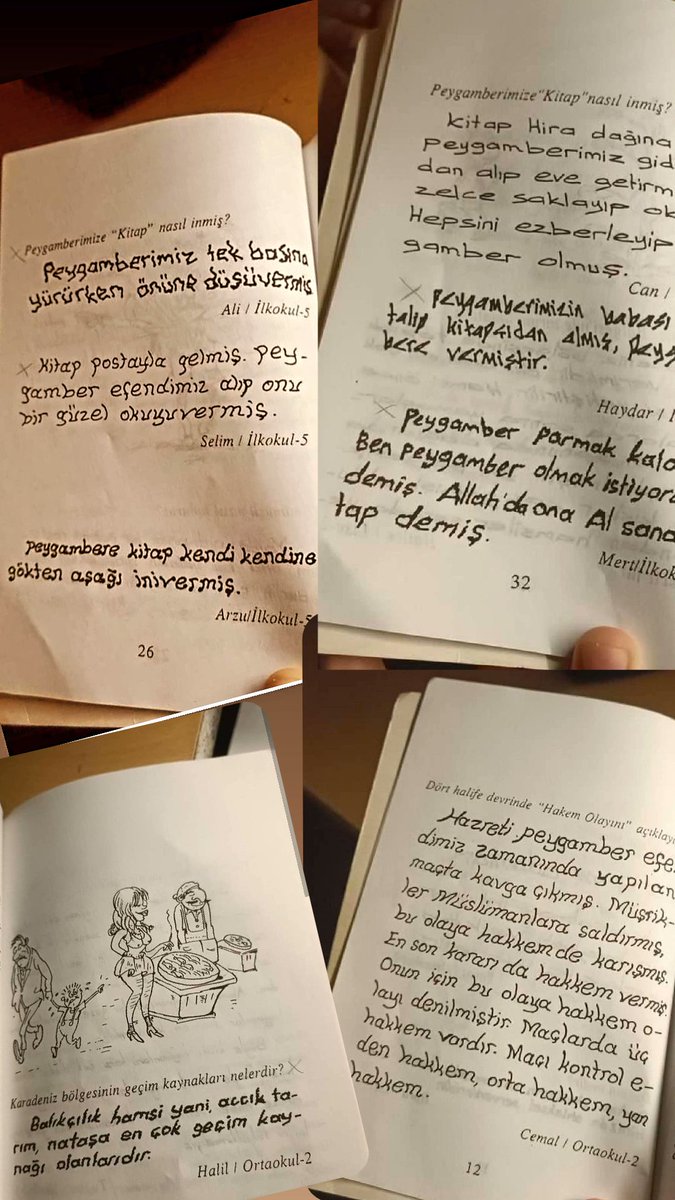 Peygamberimize "Kitap" nasıl inmiş?
Peygamberimiz tek başına
yürürken önüne düşüvermiş
Ali / İlkokul-5
Kitap postayla gelmiş. Pey-
gamber efendimiz alıp onu
bir güzel okuyuvermiş.
Selim / İlkokul-5
Peygambere kitap kendi kendine
gökten aşağı inivermiş.
Arzu/İlkokul-5
26
Peygamberimize "Kitap" nasıl inmiş?
Kitap Hira dağına
peygamberimiz gid
dan alıp eve getirm
zelce saklayıp ok
Hepsini ezberleyip
gamber olmuş.
Can /
Peygamberimizin babası
talip kitapçıdan almış, pey
bere vermiştir.
Haydar / İ
Peygamber parmak kald
Ben peygamber olmak istiyor
demiş. Allah'da ona Al sana
tap demiş.
Mert/İlkok
32
Karadeniz bölgesinin geçim kaynakları nelerdir?
Balıkçılık hamsi yani, accık ta-
rım, nataşa en çok geçim kay-
nağı olanlarıdır.
Halil / Ortaokul-2
Dört halife devrinde "Hakem Olayını" açıklayı
Hazreti peygamber efe
dimiz zamanında yapılan
maçta kavga çıkmış. Müşrik-
ler Müslümanlara saldırmış,
bu olaya hakkem de karışmış.
En son kararı da hakkem vermiş.
Onun için bu olaya hakkem o-
layı denilmiştir. Maçlarda üç
hakkem vardır. Maçı kontrol e-
den hakkem, orta hakkem, yan
hakkem.
Cemal / Ortaokul-2
12